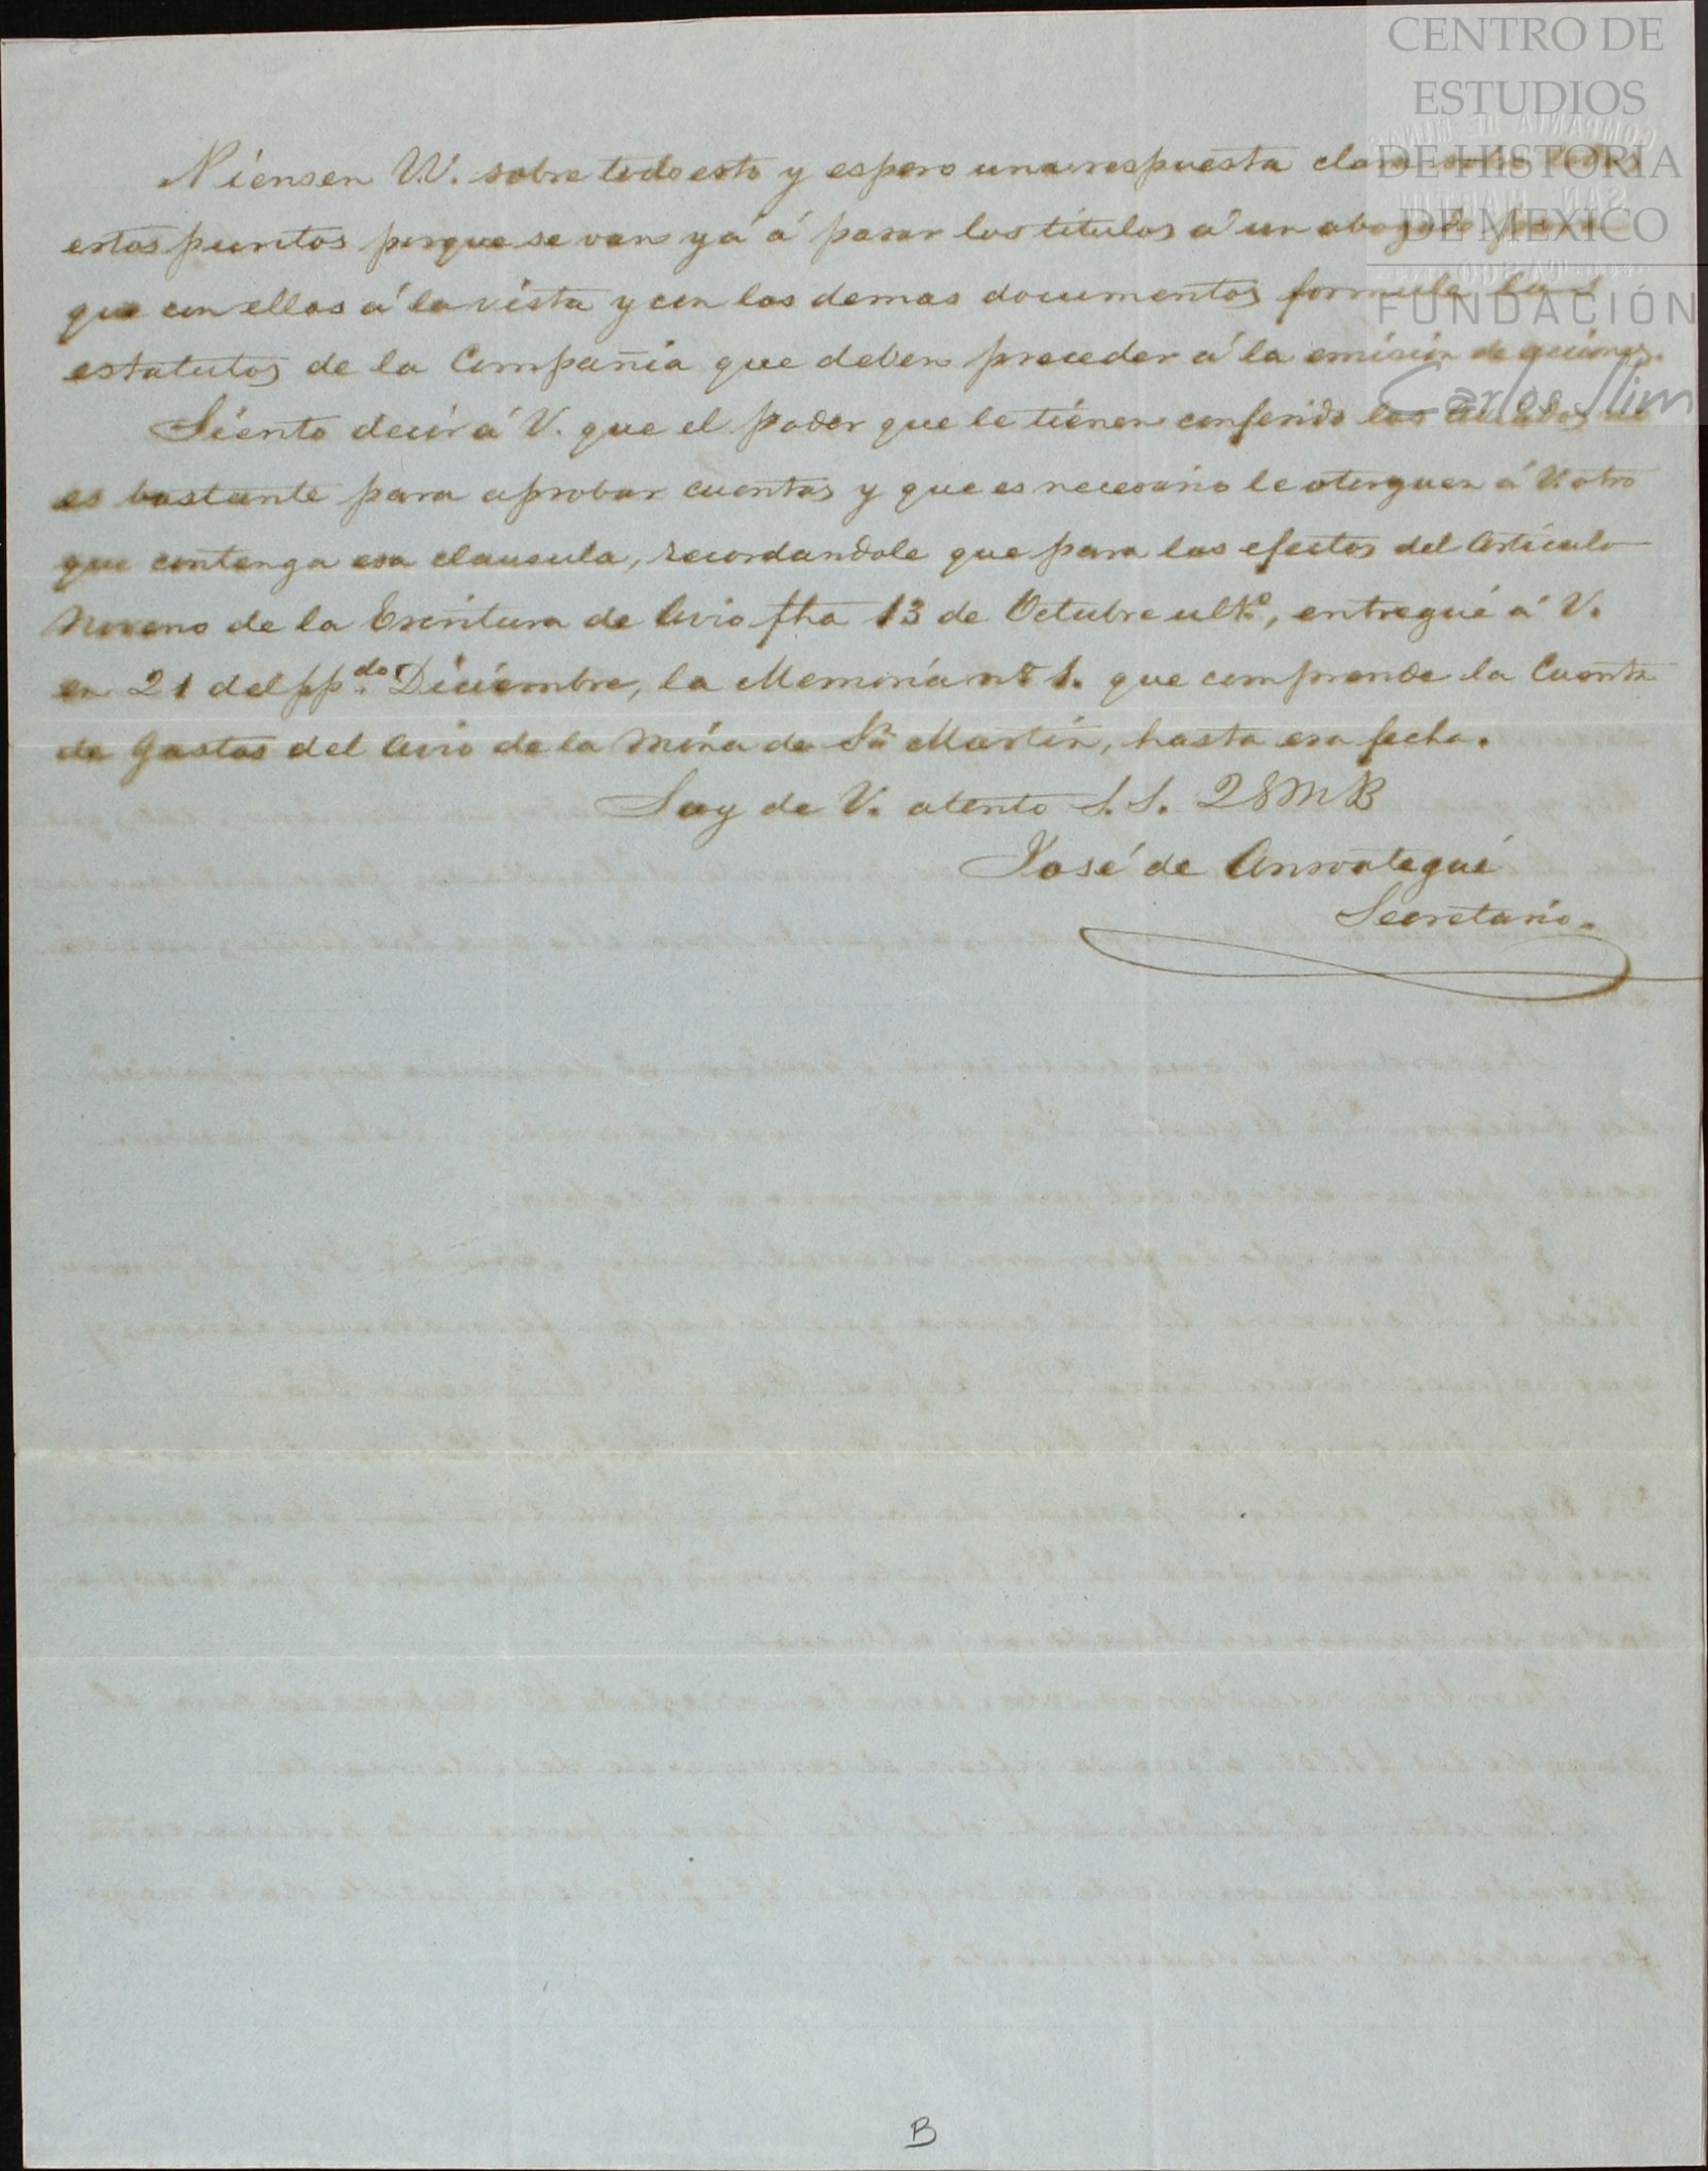 CENTRO DE
ESTUDIOS
DE HISTORIA
DE MEXICO
FUNDACIÓN
Carlos Slim
Piensen VV. sobre todo esto y espero una respuesta clara sobre todos
estos puntos porque se van yá á pasar los titulos á un abogado para
que con ellos á la vista y con los demas documentos formule los
estatutos de la Compañia que deben preceder á la emisión de acciones.
Siento decir á V. que el poder que le tienen conferido los no
es bastante para aprobar cuentas y que es necesario le otorguen á V. otro
que contenga esa clausula, recordandole que para los efectos del Artículo
Noveno de la Escritura de Avio fha 13 de Octubre ult.º, entregué á V.
en 21 del pp.do Diciembre, la Memoria nº 1. que comprende la Cuenta
de Gastos del Avio de la Mina de Sn Martin, hasta esa fecha.
Soy de V. atento S.S. Q S M B
José de Ansoategui
Secretario.
B